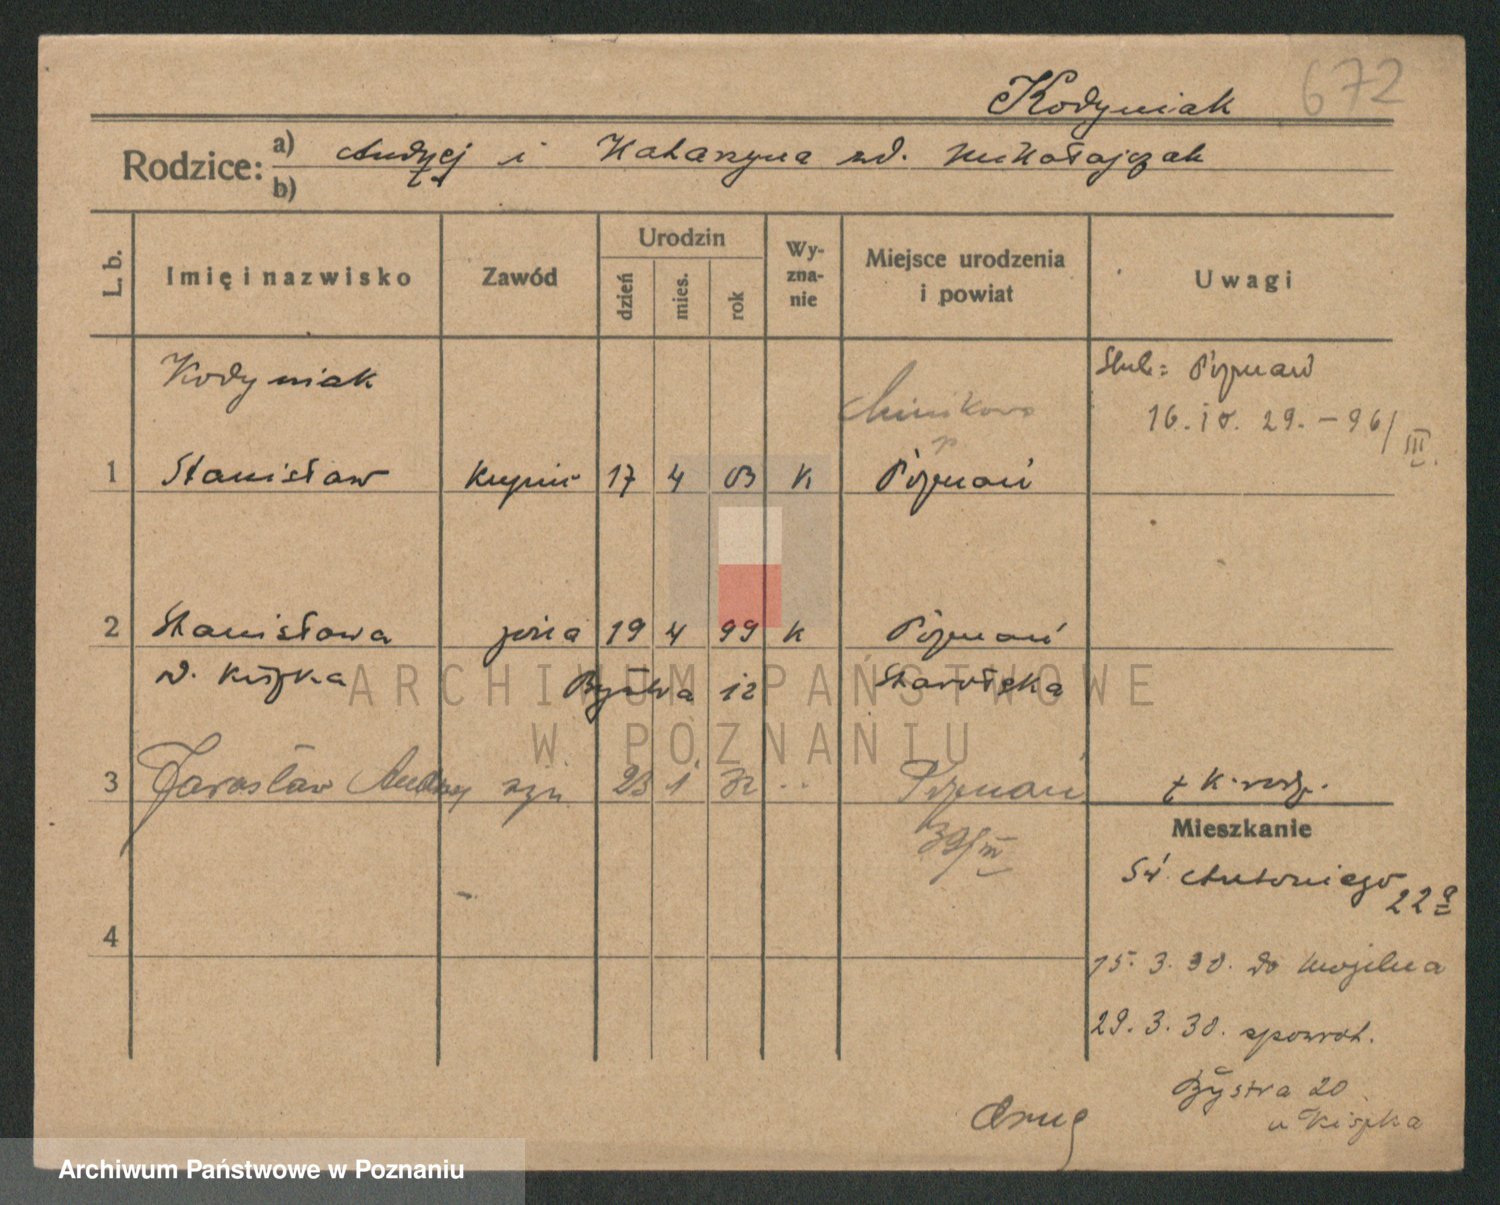 Kodyniak 672
Rodzice: a) Andrzej i Katarzyna zd. Mikołajczak
b)
L. b. Imię i nazwisko Zawód Urodzin dzień mies. rok Wyznanie Miejsce urodzenia i powiat Uwagi
Kodyniak Ślub: Poznań
Minikowo 16. 29. – 96/III.
1 Stanisław kupiec 17 4 03 K Poznań
2 Stanisława żona 19 4 99 K Poznań
Bystra 12 Starołęka
3 Jarosław Andrzej syn 23 1 32 Poznań
39/III
Mieszkanie
Św. Antoniego 22a
4
15. 3. 30. do Mogilna
29. 3. 30. spowrot.
Bystra 20
u Kiszka
ARCHIWUM PAŃSTWOWE
W POZNANIU
Archiwum Państwowe w Poznaniu